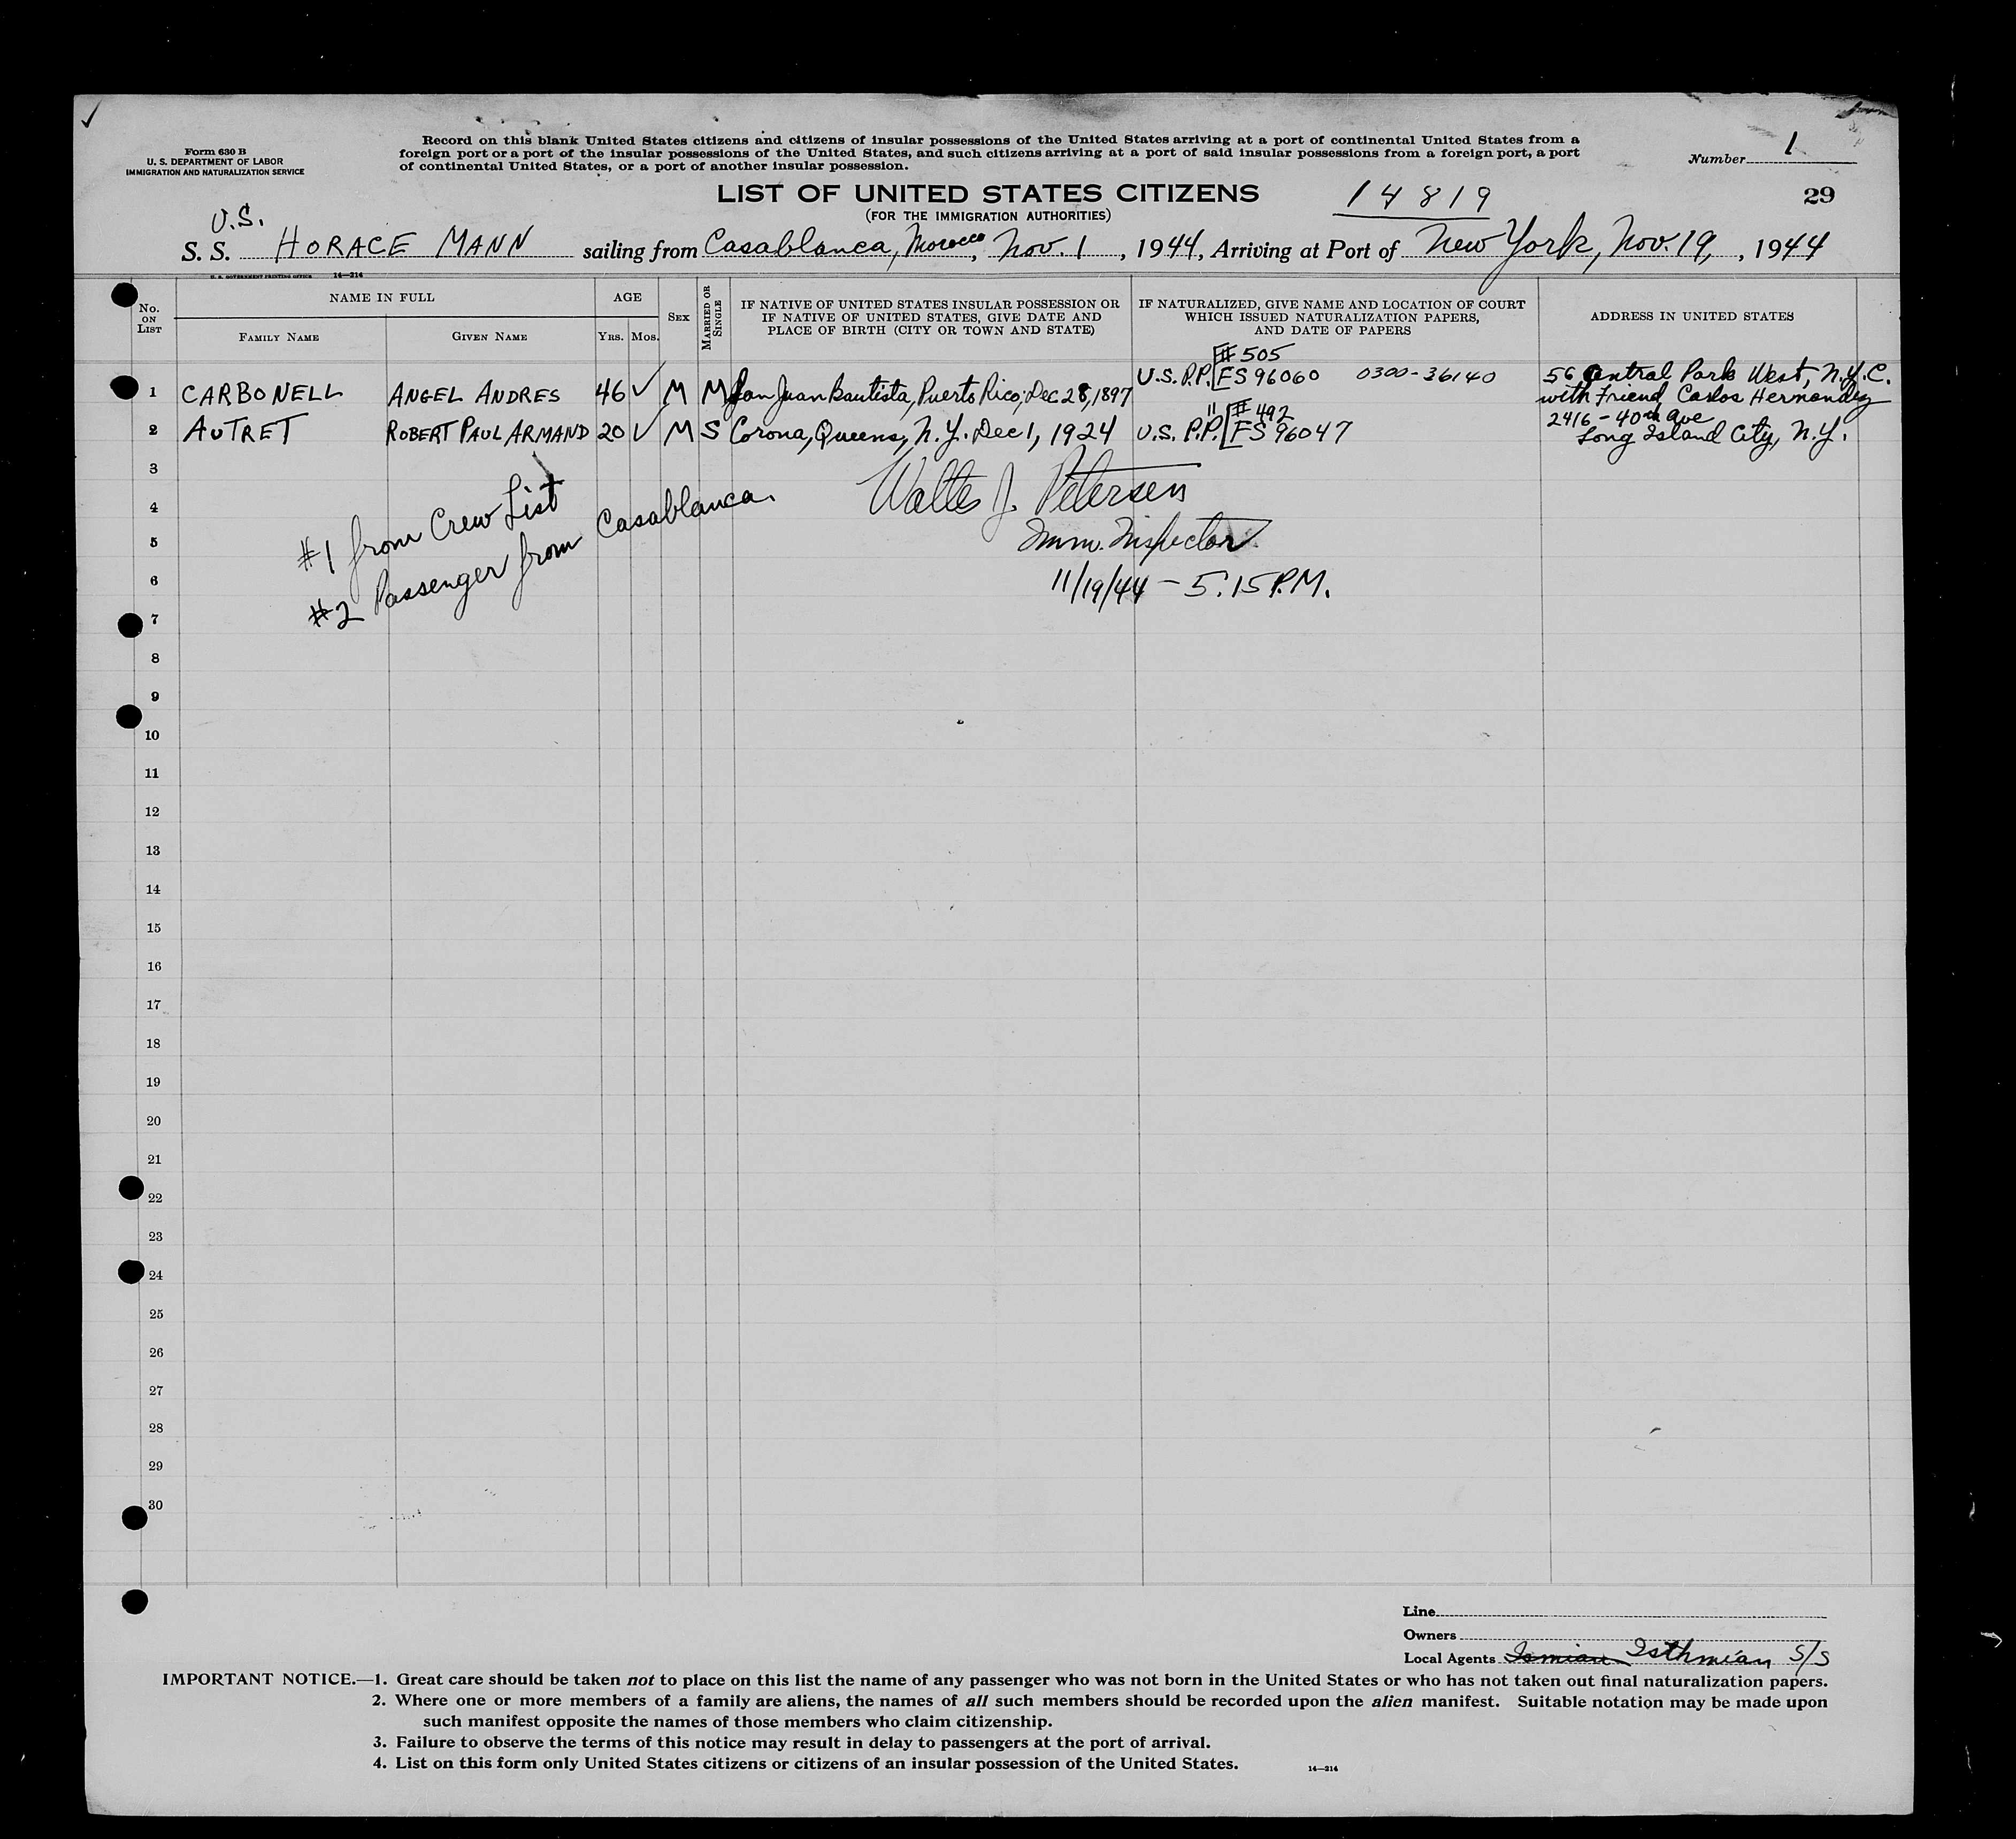 Form 630 B
U. S. DEPARTMENT OF LABOR
IMMIGRATION AND NATURALIZATION SERVICE
Record on this blank United States citizens and citizens of insular possessions of the United States arriving at a port of continental United States from a
foreign port or a port of the insular possessions of the United States, and such citizens arriving at a port of said insular possessions from a foreign port, a port
of continental United States, or a port of another insular possession.
Number 1
LIST OF UNITED STATES CITIZENS
14819
29
(FOR THE IMMIGRATION AUTHORITIES)
U.S.
S. S. HORACE MANN sailing from Casablanca, Morocco, Nov. 1, 1944, Arriving at Port of New York, Nov. 19, , 1944
U. S. GOVERNMENT PRINTING OFFICE 14—214
No. ON LIST
NAME IN FULL
FAMILY NAME
GIVEN NAME
AGE
YRS.
MOS.
SEX
MARRIED OR SINGLE
IF NATIVE OF UNITED STATES INSULAR POSSESSION OR
IF NATIVE OF UNITED STATES, GIVE DATE AND
PLACE OF BIRTH (CITY OR TOWN AND STATE)
IF NATURALIZED, GIVE NAME AND LOCATION OF COURT
WHICH ISSUED NATURALIZATION PAPERS,
AND DATE OF PAPERS
ADDRESS IN UNITED STATES
# 505
1 CARBONELL ANGEL ANDRES 46 ✓ M M San Juan Bautista, Puerto Rico; Dec 28, 1897 U.S. P.P. [FS 96060 0300-36140 56 Central Park West, N.Y.C.
with Friend, Carlos Hernandez
" [# 492
2 AUTRET ROBERT PAUL ARMAND 20 ✓ M S Corona, Queens, N.Y. Dec 1, 1924 U.S. P.P. [FS 96047 2416 - 40th Ave
Long Island City, N.Y.
3
4
5
6
7
8
9
10
11
12
13
14
15
16
17
18
19
20
21
22
23
24
25
26
27
28
29
30
#1 from Crew List
#2 Passenger from Casablanca.
Walter J. Petersen
Imm. Inspector
11/19/44 - 5:15 P.M.
Line
Owners
Local Agents Isthmian S/S
IMPORTANT NOTICE.—1. Great care should be taken not to place on this list the name of any passenger who was not born in the United States or who has not taken out final naturalization papers.
2. Where one or more members of a family are aliens, the names of all such members should be recorded upon the alien manifest. Suitable notation may be made upon
such manifest opposite the names of those members who claim citizenship.
3. Failure to observe the terms of this notice may result in delay to passengers at the port of arrival.
4. List on this form only United States citizens or citizens of an insular possession of the United States.
14—214